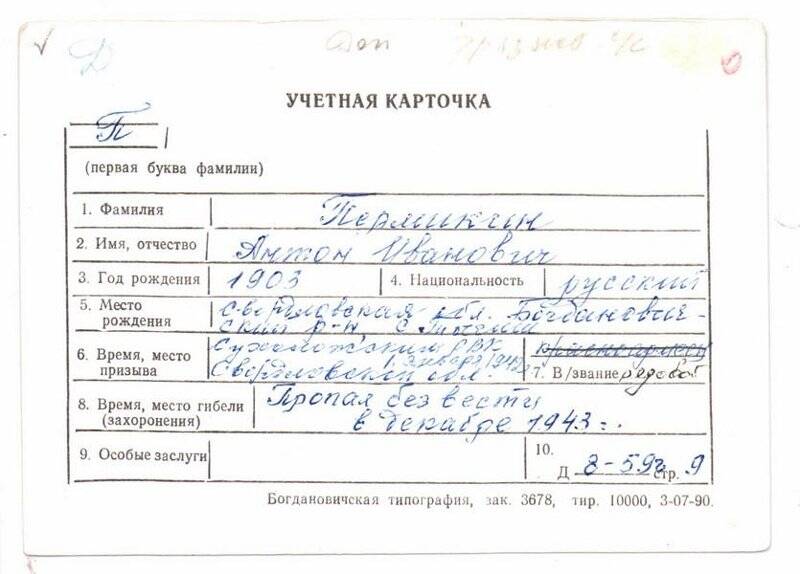 Д Доп
УЧЕТНАЯ КАРТОЧКА
П
(первая буква фамилии)
1. Фамилия Пермикин
2. Имя, отчество Антон Иванович
3. Год рождения 1903 4. Национальность русский
5. Место рождения Свердловская обл. Богданович-
ский р-н, с.
6. Время, место призыва Сухоложским РВК
Свердловской обл.
7. В/звание рядовой
8. Время, место гибели (захоронения) Пропал без вести
в декабре 1943 г.
9. Особые заслуги
10.
Д 8-59г стр. 9
Богдановичская типография, зак. 3678, тир. 10000, 3-07-90.